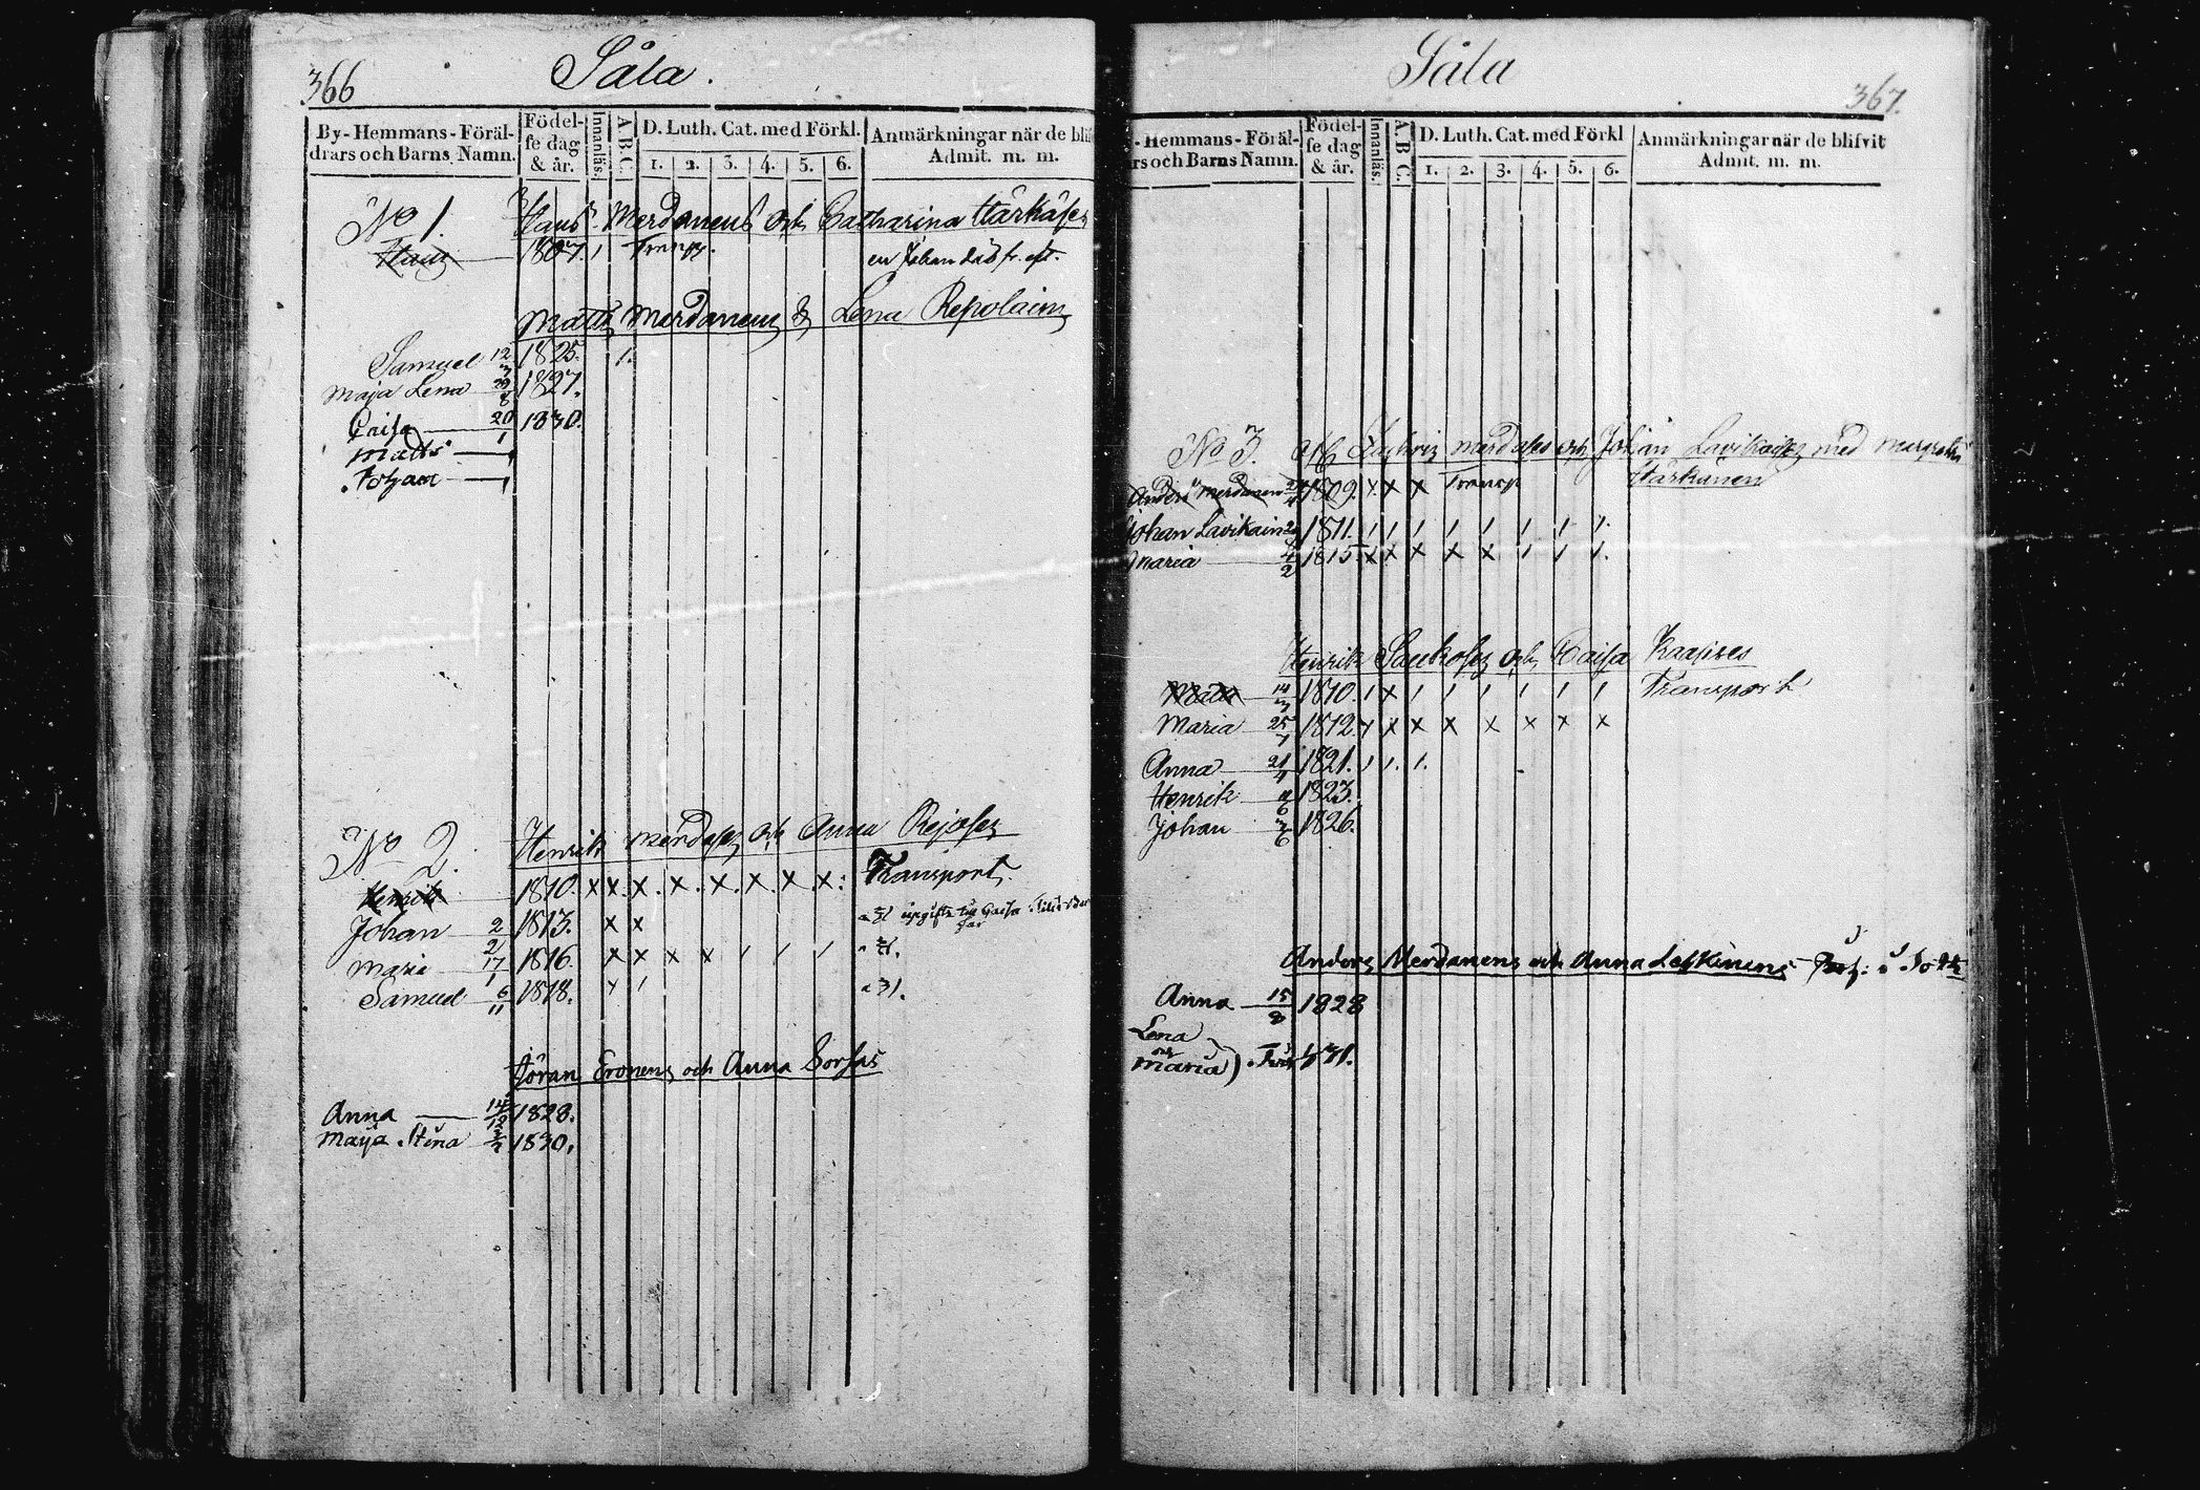 366
Såla.
By-Hemmans-Föräl-
drars och Barns Namn.
Födel-
se dag
& år.
Innanläs.
A.B.C.
D. Luth. Cat. med Förkl.
1. 2. 3. 4. 5. 6.
Anmärkningar när de blif
Admit. m. m.
No 1. Hans Merdanens och Catharina Härkäsen
Hans 1807. 1 Transp.
Matts Merdanens & Lena Repolain
Samuel 12/3 1825. 1.
Maja Lena 29/8 1827.
Caisa 20/1 1830.
Matts
Johan
No 2. Henrik Merdasen och Anna
Henrik 1810. x x. x. x. x. x. x. x: Transport.
Johan 2/2 1813. x x
Maria 17/1 1816. x x x x / / /
Samuel 6/11 1818. x /
Göran Eronens och Anna Sorsas
Anna 14/12 1828.
Maija Stina 1830.
Såla
367.
- Hemmans-Föräl-
rs och Barns Namn.
Födel-
se dag
& år.
Innanläs.
A.B.C.
D. Luth. Cat. med Förkl
1. 2. 3. 4. 5. 6.
Anmärkningar när de blifvit
Admit. m. m.
No 3. och Johan Lavikain med Margreta
Härkänen
Anders Merdanen 1809. x x x Transp
Johan Lavikain 1811. / / / / / / / /
Maria 4/2 1815. x x x x x / / /
Henrik och Caisa
Matts 14/3 1810. / x / / / / / / Transport
Maria 25/7 1812. x x x x x x x x
Anna 21/4 1821. / /. /.
Henrik 1823.
Johan 1826.
Anders Merdanens och Anna Leskinens
Anna 15/8 1828
Lena
och
Maria